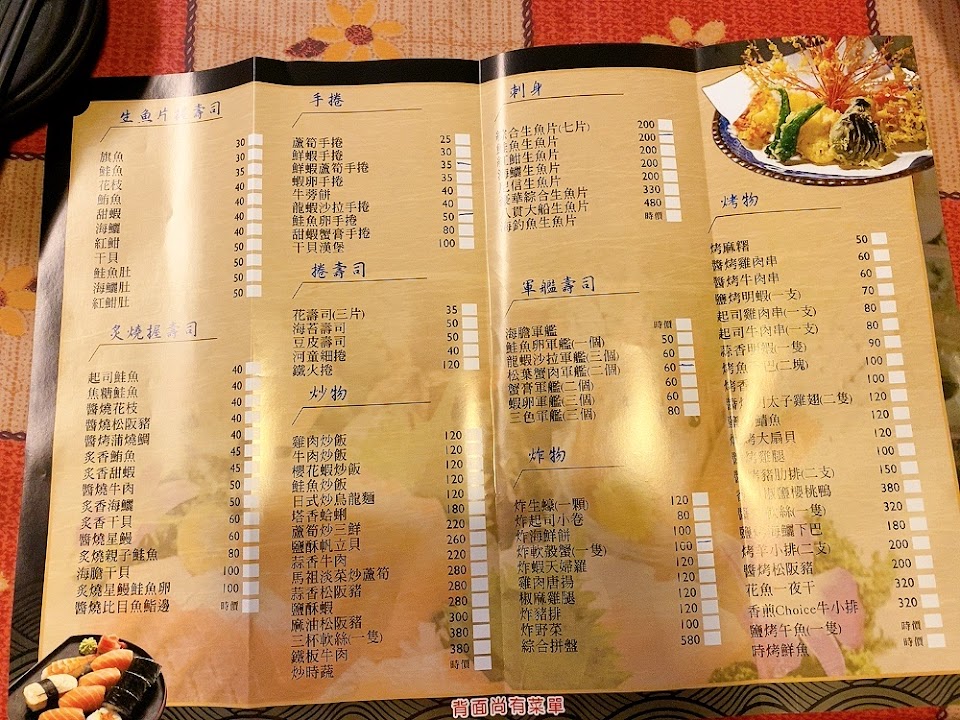 生魚片握壽司
旗魚 30
鮭魚 30
花枝 40
鮪魚 40
甜蝦 40
海鱺 40
紅魽 40
干貝 50
鮭魚肚 50
海鱺肚 50
紅魽肚 50
炙燒握壽司
起司鮭魚 40
焦糖鮭魚 40
醬燒花枝 40
醬燒松阪豬 40
醬烤蒲燒鯛 40
炙香鮪魚 45
炙香甜蝦 45
醬燒牛肉 50
炙香海鱺 50
炙香干貝 60
醬燒星鰻 60
炙燒親子鮭魚 80
海膽干貝 100
炙燒星鰻鮭魚卵 100
醬燒比目魚鰭邊 時價
手捲
蘆筍手捲 25
鮮蝦手捲 30
鮮蝦蘆筍手捲 30
蝦卵手捲 35
牛蒡餅 40
龍蝦沙拉手捲 40
鮭魚卵手捲 50
甜蝦蟹膏手捲 80
干貝漢堡 100
捲壽司
花壽司(三片) 35
海苔壽司 50
豆皮壽司 50
河童細捲 40
鐵火捲 120
炒物
雞肉炒飯 120
牛肉炒飯 120
櫻花蝦炒飯 120
鮭魚炒飯 120
日式炒烏龍麵 120
塔香蛤蜊 180
蘆筍炒三鮮 260
鹽酥帆立貝 220
蒜香牛肉 220
馬祖淡菜炒蘆筍 280
蒜香松阪豬 280
鹽酥蝦 280
麻油松阪豬 300
三杯軟絲(一隻) 380
鐵板牛肉 380
炒時蔬 時價
刺身
綜合生魚片(七片) 200
鮭魚生魚片 200
紅魽生魚片 200
海鱺生魚片 200
信生魚片 200
豪華綜合生魚片 330
八貫大船生魚片 480
海釣魚生魚片 時價
軍艦壽司
海膽軍艦 時價
鮭魚卵軍艦(一個) 50
龍蝦沙拉軍艦(三個) 50
松葉蟹肉軍艦(二個) 60
蟹膏軍艦(二個) 60
蝦卵軍艦(三個) 60
三色軍艦(三個) 80
炸物
炸生蠔(一顆) 120
炸起司小卷 80
炸海鮮餅 100
炸軟殼蟹(一隻) 100
炸蝦天婦羅 120
雞肉唐揚 120
椒麻雞腿 120
炸豬排 120
炸野菜 100
綜合拼盤 580
烤物
烤麻糬 50
醬烤雞肉串 60
醬烤牛肉串 60
鹽烤明蝦(一支) 70
起司雞肉串(一支) 80
起司牛肉串(一支) 80
蒜香明蝦(一隻) 90
烤魚下巴(二塊) 100
烤香
明太子雞翅(二隻) 120
鯖魚 120
烤大扇貝 120
雞腿
烤豬肋排(二支) 150
櫻桃鴨 380
絲(一隻)
海鱺下巴
烤羊小排(二支)
醬烤松阪豬
花魚一夜干 320
香煎Choice牛小排 320
鹽烤午魚(一隻) 時價
時烤鮮魚 時價
背面尚有菜單